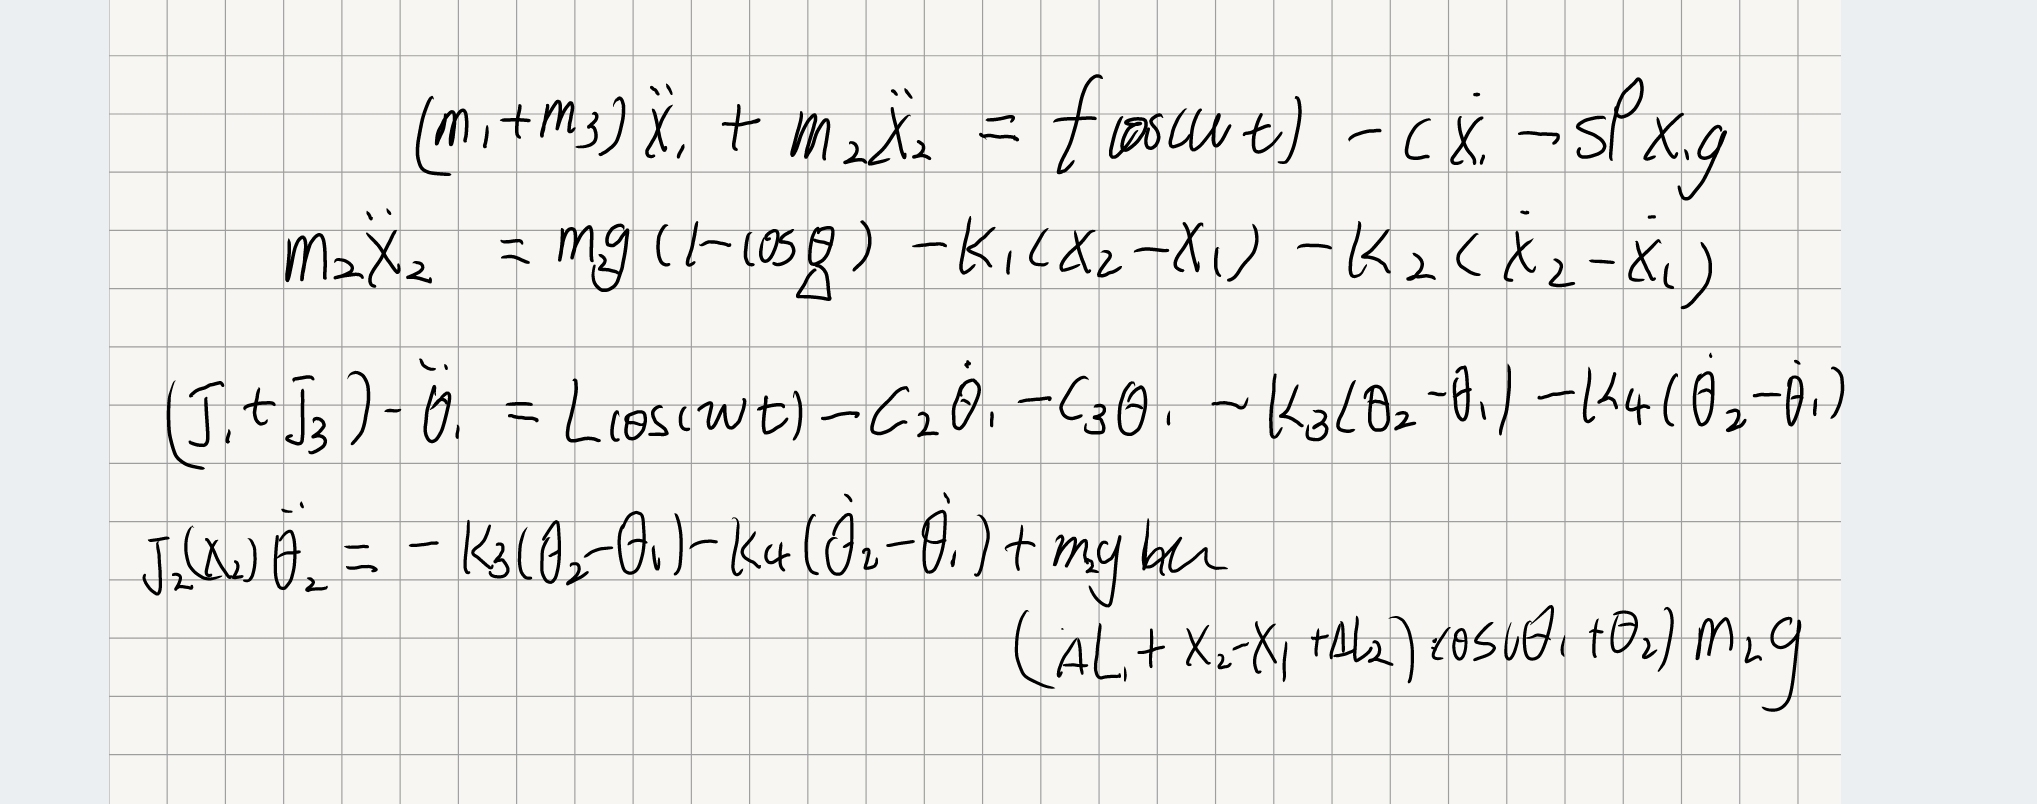 (m₁+m₃)ẍ₁ + m₂ẍ₂ = f cos(wt) - cẋ₁ - sρx₁g
m₂ẍ₂ = m₂g(1-cosθ) - K₁(x₂-x₁) - K₂(ẋ₂-ẋ₁)
(J₁+J₃)-θ̈₁ = Lcos(wt) - C₂θ̇₁ - C₃θ₁ - K₃(θ₂-θ₁) - K₄(θ̇₂-θ̇₁)
J₂(x₂)θ̈₂ = - K₃(θ₂-θ₁) - K₄(θ̇₂-θ̇₁) + m₂g
(ΔL₁ + x₂-x₁ + ΔL₂) cos(θ₁+θ₂) m₂g